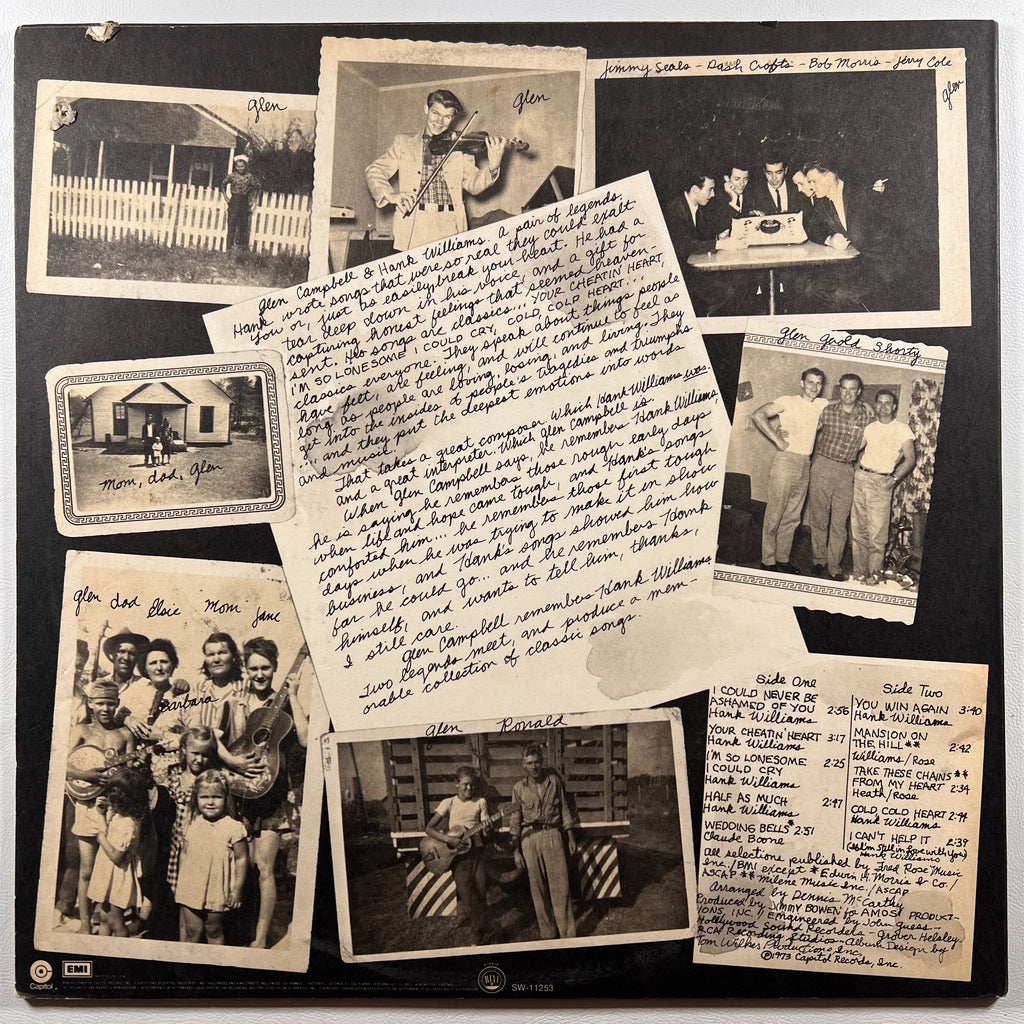 Glen
Glen
Jimmy Seals - Dash Crofts - Bob Morris - Jerry Cole
Glen
Glen Campbell & Hank Williams. A pair of legends.
Hank wrote songs that were so real they could exalt
you or, just as easily break your heart. He had a
tear deep down in his voice, and a gift for
capturing honest feelings that seemed heaven-
sent. His songs are classics... YOUR CHEATIN' HEART,
I'M SO LONESOME I COULD CRY, COLD, COLD HEART...
classics everyone. They speak about things people
have felt, are feeling, and will continue to feel as
long as people are loving, losing, and living. They
get into the insides of people's tragedies and triumphs
... and they put the deepest emotions into words
and music.
That takes a great composer. Which Hank Williams was.
and a great interpreter. Which Glen Campbell is.
When Glen Campbell says, he remembers Hank Williams,
he is saying he remembers those rough early days
when life and hope came tough, and Hank's songs
comforted him... he remembers those first tough
days when he was trying to make it in show
business, and Hank's songs showed him how
far he could go... and he remembers Hank
himself, and wants to tell him, thanks,
I still care.
Glen Campbell remembers Hank Williams
Two legends meet, and produce a mem-
orable collection of classic songs.
Mom, dad, Glen
Glen Gerald Shorty
Glen dad Elsie Mom Jane
Barbara
Glen Ronald
Side One
I COULD NEVER BE
ASHAMED OF YOU 2:56
Hank Williams
YOUR CHEATIN' HEART 3:17
Hank Williams
I'M SO LONESOME 2:25
I COULD CRY
Hank Williams
HALF AS MUCH 2:47
Hank Williams
WEDDING BELLS* 2:51
Claude Boone
Side Two
YOU WIN AGAIN 3:40
Hank Williams
MANSION ON
THE HILL** 2:42
Williams/Rose
TAKE THESE CHAINS**
FROM MY HEART 2:34
Heath/Rose
COLD, COLD HEART 2:44
Hank Williams
I CAN'T HELP IT 2:39
(If I'm Still in Love with You)
Hank Williams
All selections published by Fred Rose Music
Inc./BMI except * Edwin H. Morris & Co./
ASCAP ** Milene Music Inc./ASCAP
Arranged by Dennis McCarthy
Produced by JIMMY BOWEN for AMOS PRODUCT-
IONS, INC. / Engineered by John Guess -
Hollywood Sound Recorders - Grover Helsley
RCA Recording Studios - Album Design by
Tom Wilkes Productions Inc.
℗1973 Capitol Records, Inc.
Capitol
EMI
SW-11253